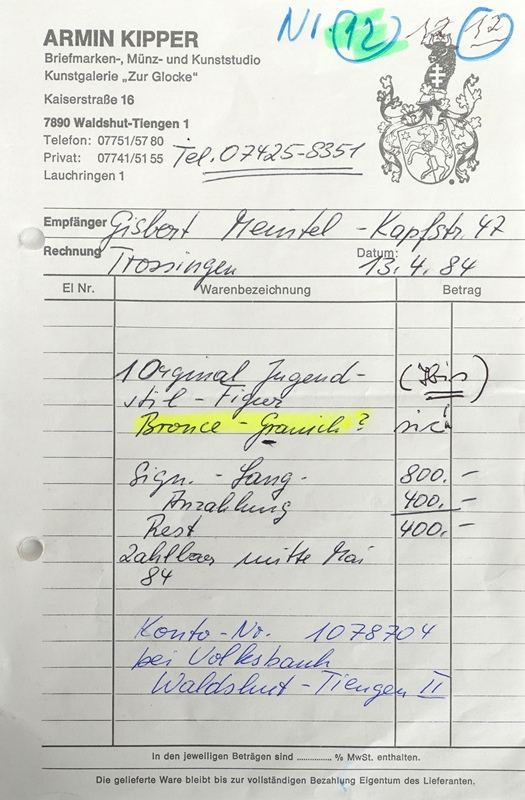 Nr. 12 12 12
ARMIN KIPPER
Briefmarken-, Münz- und Kunststudio
Kunstgalerie „Zur Glocke“
Kaiserstraße 16
7890 Waldshut-Tiengen 1
Telefon: 07751/57 80
Privat: 07741/51 55
Lauchringen 1
Tel. 07425-8351
Empfänger Gisbert Meintel - Kapfstr. 47
Rechnung Trossingen Datum: 13. 4. 84
El Nr. Warenbezeichnung Betrag
1 Orginal Jugend- (Ibis)
stil - Figur
Bronce - ? sic!
Sign. - Lang. 800.-
Anzahlung 400.-
Rest 400.-
Zahlbar mitte Mai
84
Konto-Nr. 1078704
bei Volksbank
Waldshut-Tiengen II
In den jeweiligen Beträgen sind ............ % MwSt. enthalten.
Die gelieferte Ware bleibt bis zur vollständigen Bezahlung Eigentum des Lieferanten.